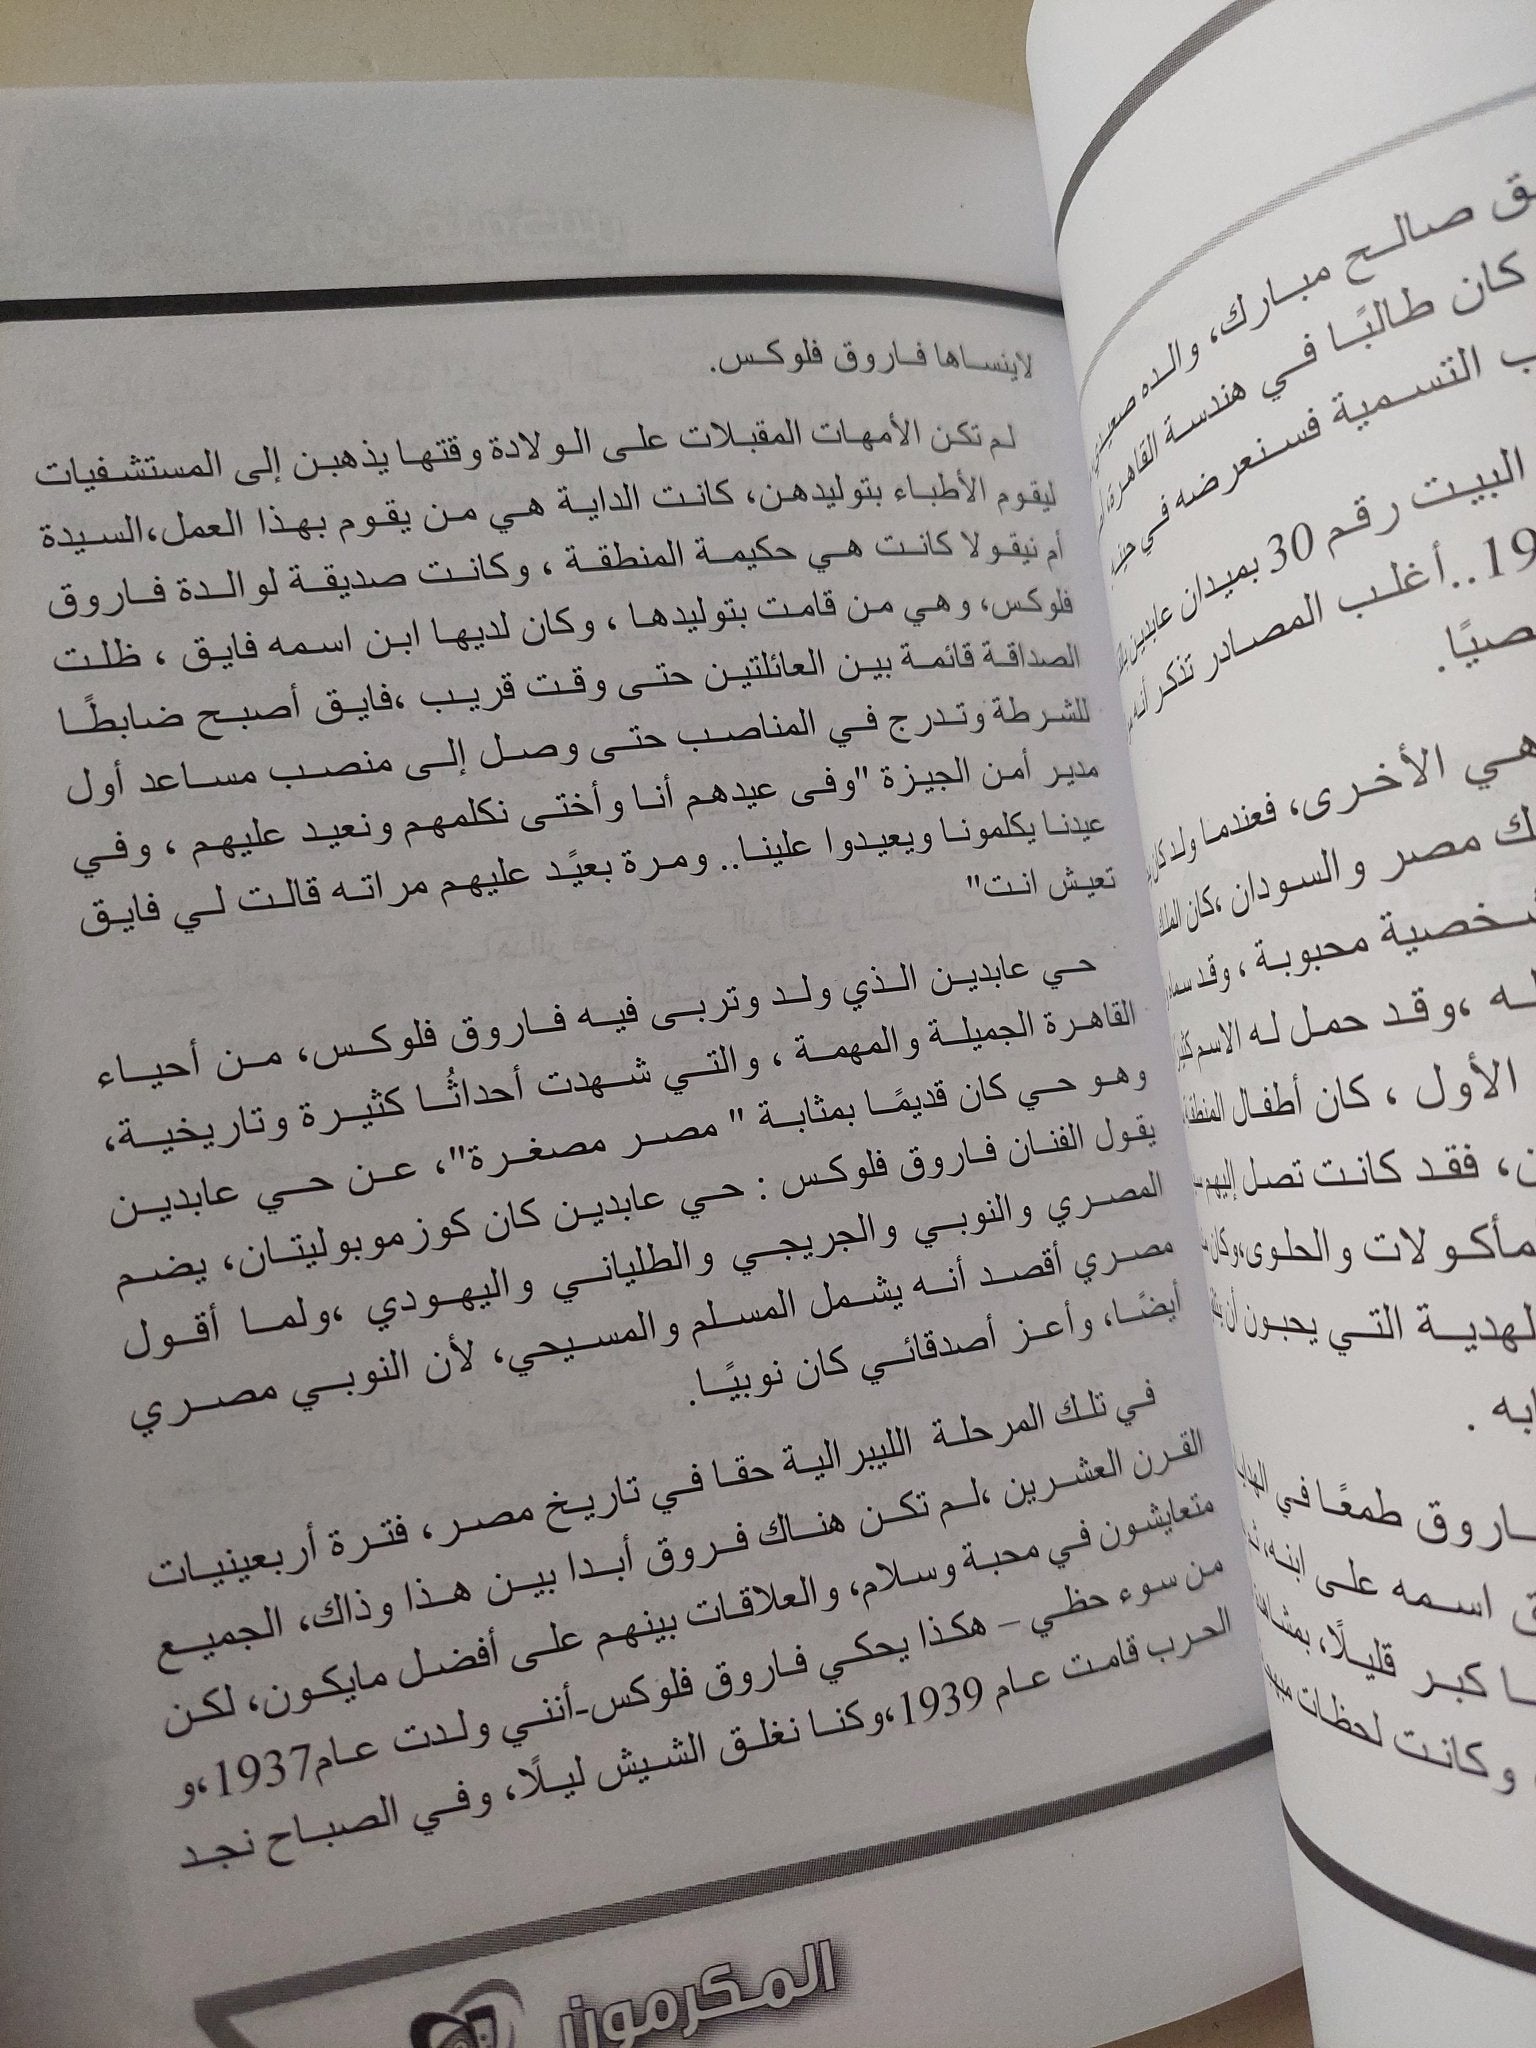 صالح مبارك، والده
كان طالبًا في هندسة القاهرة،
التسمية فسنعرضه في
البيت رقم 30 بميدان عابدين
19..أغلب المصادر تذكر أنه
صيًا.
هي الأخرى، فعندما ولد كان
مصر والسودان ،كان الملك
شخصية محبوبة ، وقد سماه
له ،وقد حمل له الاسم
الأول ، كان أطفال المنطقة
فقد كانت تصل إليهم
مأكولات والحلوى،وكان
لهدية التي يحبون أن
ابه .
اروق طمعًا في
اسمه على ابنه،
كبر قليلًا،
وكانت لحظات
لاينساها فاروق فلوكس.
لم تكن الأمهات المقبلات على الولادة وقتها يذهبن إلى المستشفيات
ليقوم الأطباء بتوليدهن، كانت الداية هي من يقوم بهذا العمل،السيدة
أم نيقولا كانت هي حكيمة المنطقة ، وكانت صديقة لوالدة فاروق
فلوكس، وهي من قامت بتوليدها ، وكان لديها ابن اسمه فايق ، ظلت
الصداقة قائمة بين العائلتين حتى وقت قريب ،فايق أصبح ضابطًا
للشرطة وتدرج في المناصب حتى وصل إلى منصب مساعد أول
مدير أمن الجيزة "وفى عيدهم أنا وأختى نكلمهم ونعيد عليهم ، وفي
عيدنا يكلمونا ويعيدوا علينا.. ومرة بعيًد عليهم مراته قالت لي فايق
تعيش انت"
حي عابدين الذي ولد وتربى فيه فاروق فلوكس، من أحياء
القاهرة الجميلة والمهمة ، والتي شهدت أحداثُا كثيرة وتاريخية،
وهو حي كان قديمًا بمثابة " مصر مصغرة"، عن حي عابدين
يقول الفنان فاروق فلوكس : حي عابدين كان كوزموبوليتان، يضم
المصري والنوبي والجريجي والطلياني واليهودي ،ولما أقول
مصري أقصد أنه يشمل المسلم والمسيحي، لأن النوبي مصري
أيضًا، وأعز أصدقائي كان نوبيًا.
في تلك المرحلة الليبرالية حقا في تاريخ مصر، فترة أربعينيات
القرن العشرين ،لم تكن هناك فروق أبدا بين هذا وذاك، الجميع
متعايشون في محبة وسلام، والعلاقات بينهم على أفضل مايكون، لكن
من سوء حظي – هكذا يحكي فاروق فلوكس-أنني ولدت عام1937،و
الحرب قامت عام 1939،وكنا نغلق الشيش ليلًا، وفي الصباح نجد
المكرمون